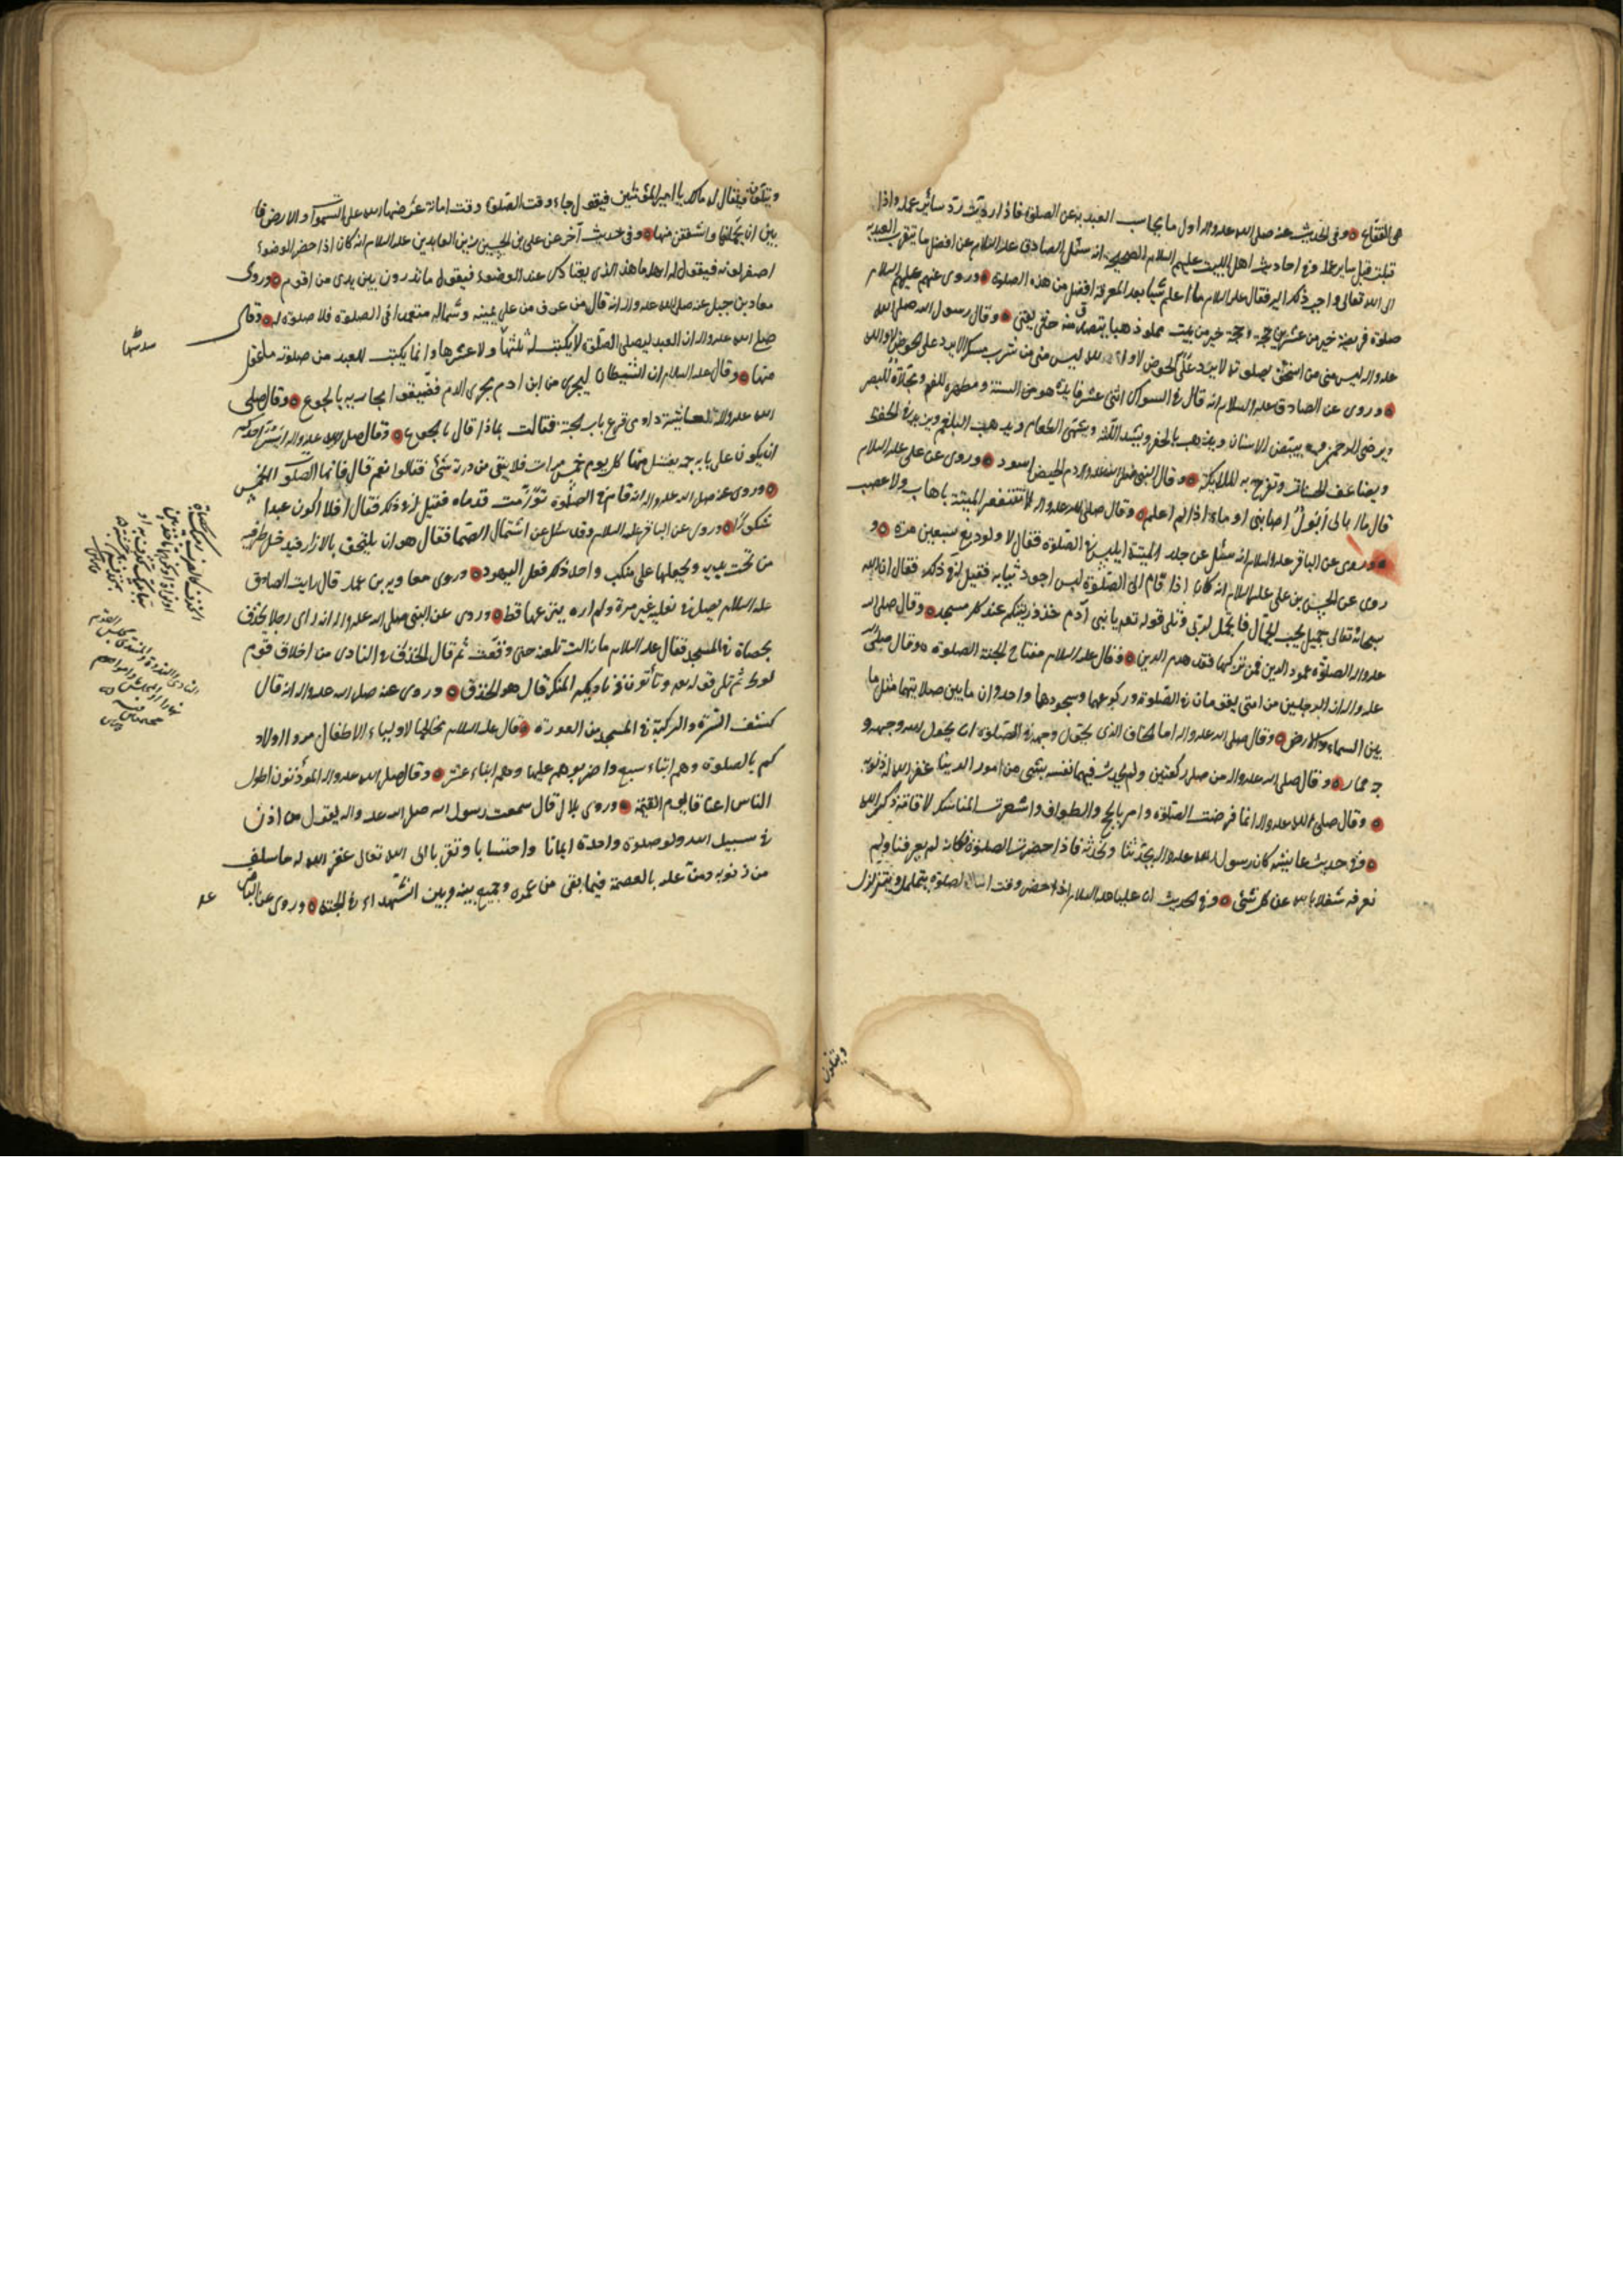 هى الفقاع وفى الحديث عنه صلى الله عليه واله اول ما يحاسب العبد به عن الصلوة فاذا ردت رد سائر عمله واذا
قبلت قبل ساير عمله وفى احاديث اهل البيت عليهم السلام انه سئل الصادق عليه السلام عن افضل ما يتقرب العبد به
الى الله تعالى واحب ذلك اليه فقال عليه السلام ما اعلم شيئا بعد المعرفة افضل من هذه الصلوة وروى عنهم عليهم السلام
صلوة فريضة خير من عشرين حجة وحجة خير من بيت مملو ذهبا يتصدق منه حتى يفنى وقال رسول الله صلى الله
عليه واله ليس منى من استخف بصلوته لا يرد على الحوض لا والله ليس منى من شرب مسكرا لا يرد على الحوض لا والله
وروى عن الصادق عليه السلام انه قال فى السواك اثنى عشر فايدة هو من السنة ومطهرة للفم ومجلاة للبصر
ويرضى الرحمن ويبيض الاسنان ويذهب بالحفر ويشد اللثة ويشهى الطعام ويذهب البلغم ويزيد فى الحفظ
ويضاعف الحسنات وتفرح به الملائكة وقال النبى صلى الله عليه واله دم الحيض اسود وروى عن على عليه السلام
قال ما ابالى أبول اصابنى او ماء اذا لم اعلم وقال صلى الله عليه واله لا تنتفعوا من الميتة باهاب ولا عصب
وروى عن الباقر عليه السلام انه سئل عن جلد الميتة ايلبس فى الصلوة فقال لا ولو دبغ سبعين مرة و
روى عن الحسن بن على عليه السلام انه كان اذا قام الى الصلوة لبس اجود ثيابه فقيل له فى ذلك فقال ان الله
سبحانه تعالى جميل يحب الجمال فاتجمل لربى وتلى قوله تعه يا بنى آدم خذوا زينتكم عند كل مسجد وقال صلى الله
عليه واله الصلوة عمود الدين فمن تركها فقد هدم الدين وقال عليه السلام مفتاح الجنة الصلوة وقال صلى الله
عليه واله ان الرجلين من امتى يقومان فى الصلوة وركوعهما وسجودهما واحد وان ما بين صلاتيهما مثل ما
بين السماء والارض وقال صلى الله عليه واله اما يخاف الذى يحول وجهه فى الصلوة ان يحول الله وجهه و
جه حمار وقال صلى الله عليه واله من صلى ركعتين ولم يحدث فيهما نفسه بشئ من امور الدنيا غفر الله له ذنوبه
وقال صلى الله عليه واله انما فرضت الصلوة وامر بالحج والطواف واشعرت المناسك لاقامة ذكر الله
وفى حديث عايشة كان رسول الله عليه واله يحدثنا ونحدثه فاذا حضرت الصلوة فكانه لم يعرفنا ولم
نعرفه شغلا بالله عن كل شئ وفى الحديث ان عليا عليه السلام اذا حضر وقت الصلوة يتململ ويتزلزل
ويتلون
ويتلون فيقال له مالك يا امير المؤمنين فيقول جاء وقت الصلوة وقت امانة عرضها الله على السموات والارض فا
بين ان يحملنها واشفقن منها وفى حديث آخر عن على بن الحسين زين العابدين عليه السلام انه كان اذا حضر الوضوء
اصفر لونه فيقول له اهله ما هذا الذى يعتادك عند الوضوء فيقول ما تدرون بين يدى من اقوم وروى
معاذ بن جبل عنه صلى الله عليه واله انه قال من عرف من على يمينه وشماله متعمدا فى الصلوة فلا صلوة له وقال
صلى الله عليه واله ان العبد ليصلى الصلوة لا يكتب له ثلثها ولا عشرها وانما يكتب للعبد من صلوته ما عقل
سدسها
منها وقال عليه السلام ان الشيطان ليجرى من ابن ادم مجرى الدم فضيقوا مجاريه بالجوع وقال صلى
الله عليه واله لعائشة داومى قرع باب الجنة فقالت بماذا قال بالجوع وقال صلى الله عليه واله ايسر احدكم
ان يكون على بابه حمه يغتسل منها كل يوم خمس مرات فلا يبقى من درنه شئ فقالوا نعم قال فانها الصلوات الخمس
وروى عنه صلى الله عليه واله انه قام فى الصلوة حتى تورمت قدماه فقيل له فى ذلك فقال افلا اكون عبدا
شكورا وروى عن الباقر عليه السلام وقد سئل عن اشتمال الصما فقال هو ان يلتحف بالازار فيدخل طرفيه
من تحت يديه ويجعلها على منكب واحد ذلك فعل اليهود وروى معاوية بن عمار قال رايت الصادق
عليه السلام يصلى فى نعليه غير مرة ولم اره ينزعهما قط وروى عن النبى صلى الله عليه واله انه راى رجلا يخذف
بحصاة فى المسجد فقال عليه السلام ما زالت تلعنه حتى وقعت ثم قال الخذف فى النادى من اخلاق قوم
لوط ثم تلى قوله تعه وتأتون فى ناديكم المنكر قال هو الخذف وروى عنه صلى الله عليه واله انه قال
كشف السرة والركبة فى المسجد من العورة وقال عليه السلام مخاطبا لاولياء الاطفال مروا اولاد
كم بالصلوة وهم ابناء سبع واضربوهم عليها وهم ابناء عشر وقال صلى الله عليه واله المؤذنون اطول
الناس اعناقا يوم القيمة وروى بلال قال سمعت رسول الله صلى الله عليه واله يقول من اذن
فى سبيل الله ولو صلوة واحدة ايمانا واحتسابا وتقربا الى الله تعالى غفر الله له ما سلف
من ذنوبه ومن عليه بالعصمة فيما بقى من عمره وجمع بينه وبين الشهداء فى الجنة وروى عن الباقر